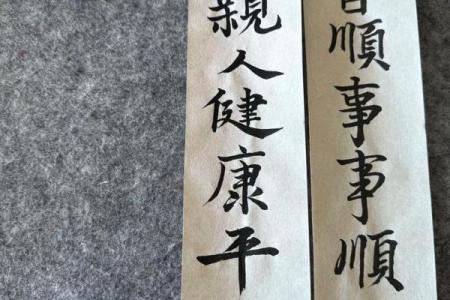 順事事順
親人健康平